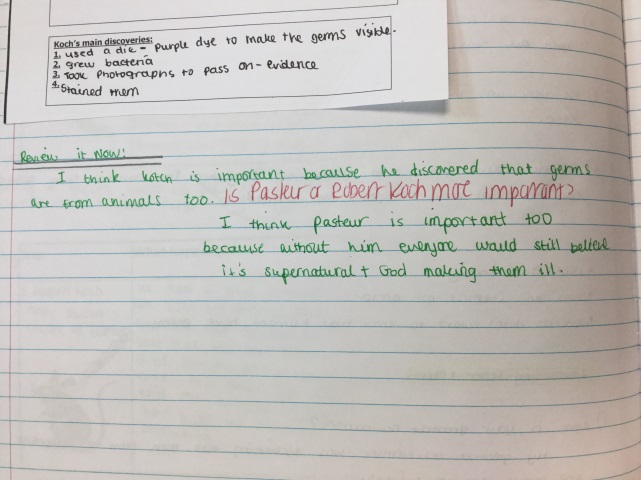 Koch's main discoveries:
1. used a die - purple dye to make the germs visible.
2. grew bacteria
3. Took photographs to pass on - evidence
4. Stained them
Review it Now:
I think kotch is important because he discovered that germs
are from animals too. Is Pasteur or Robert Koch more important?
I think pasteur is important too
because without him everyone would still believe
it's supernatural + God making them ill.